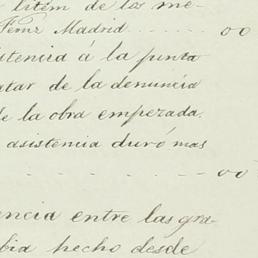 litem de los me-
Fernz Madrid ..... 00
istencia á la punta
atar de la denuncia
de la obra empezada.
asistencia duró mas
- - - - - 00
encia entre las gra-
bia hecho desde